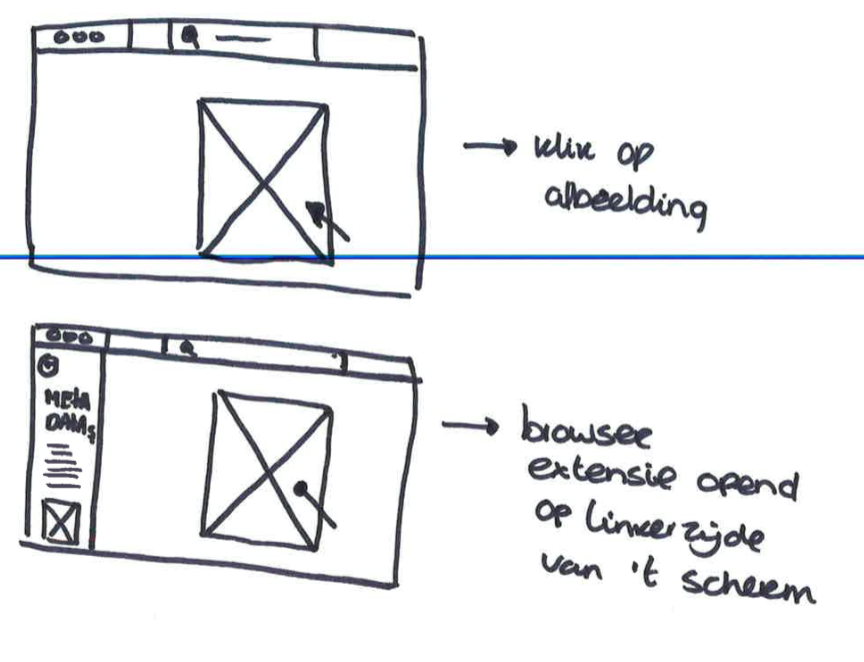 klik op
afbeelding
META
DATA
browser
extensie opend
op linkerzijde
van 't scherm